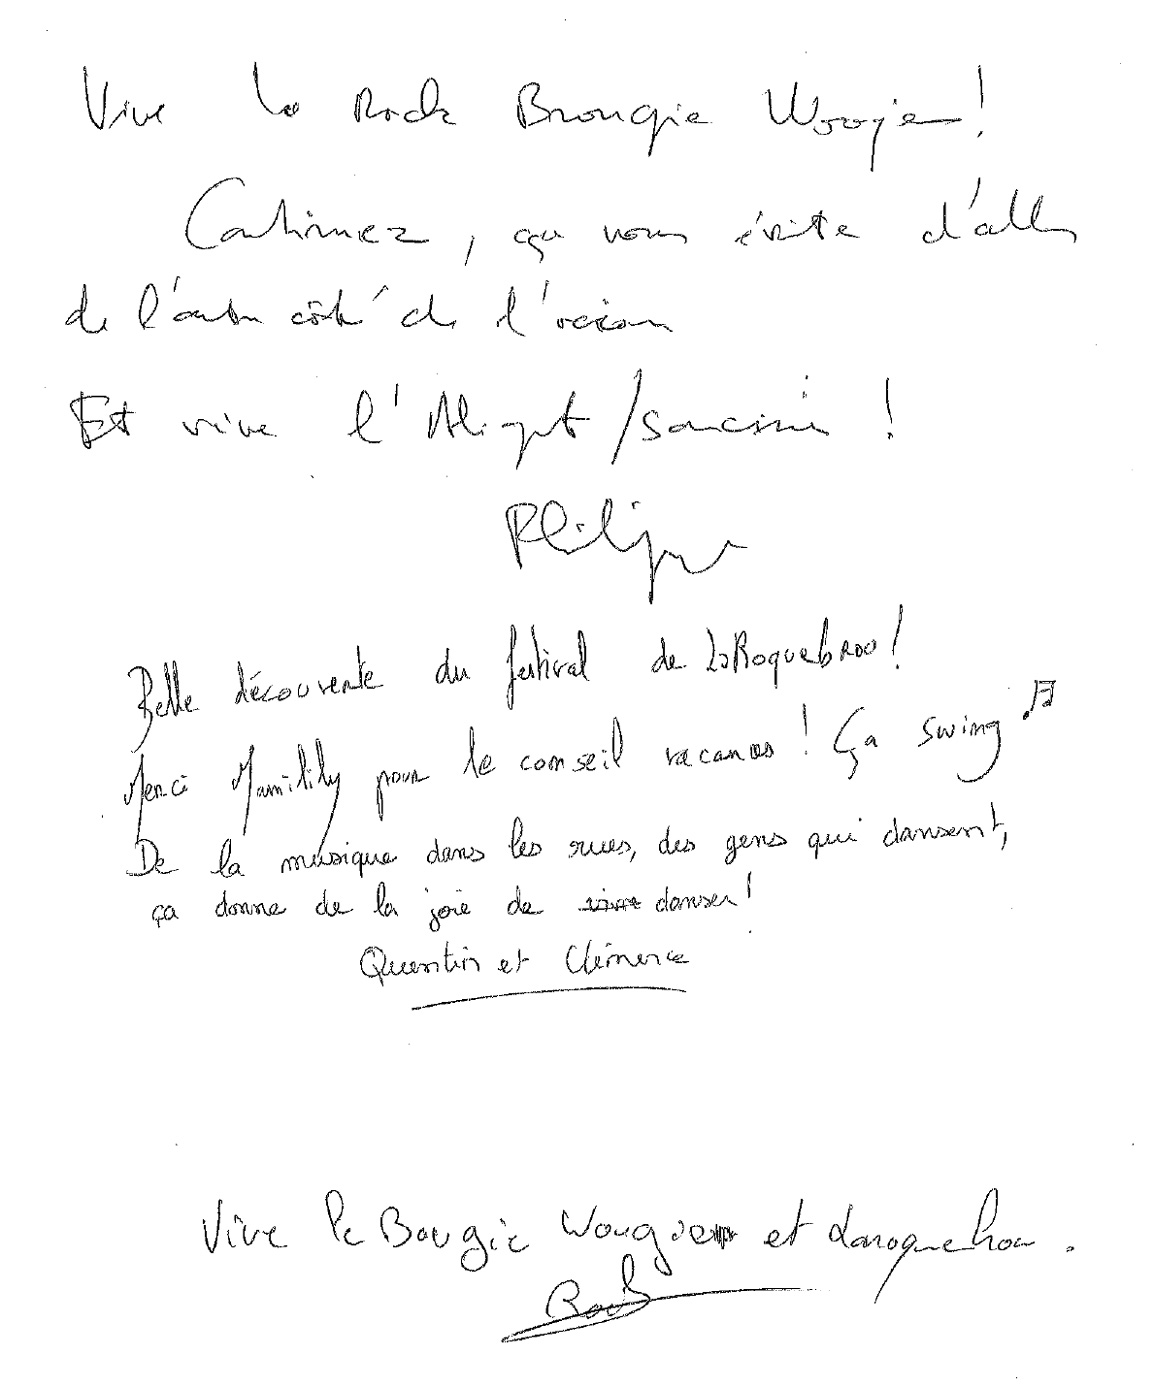 Vive le Rock Brougie Woogie !
Continuez, ça vous évite d'aller
de l'autre côté de l'océan
Et vive l'Aligot / saucisse !
Philippe
Belle découverte du festival de LaRoquebrou !
Merci Mamilily pour le conseil vacances ! Ça swing ♫
De la musique dans les rues, des gens qui dansent,
ça donne de la joie de vivre danser !
Quentin et Clémence
Vive le Bougie Wougie et Laroquebrou.